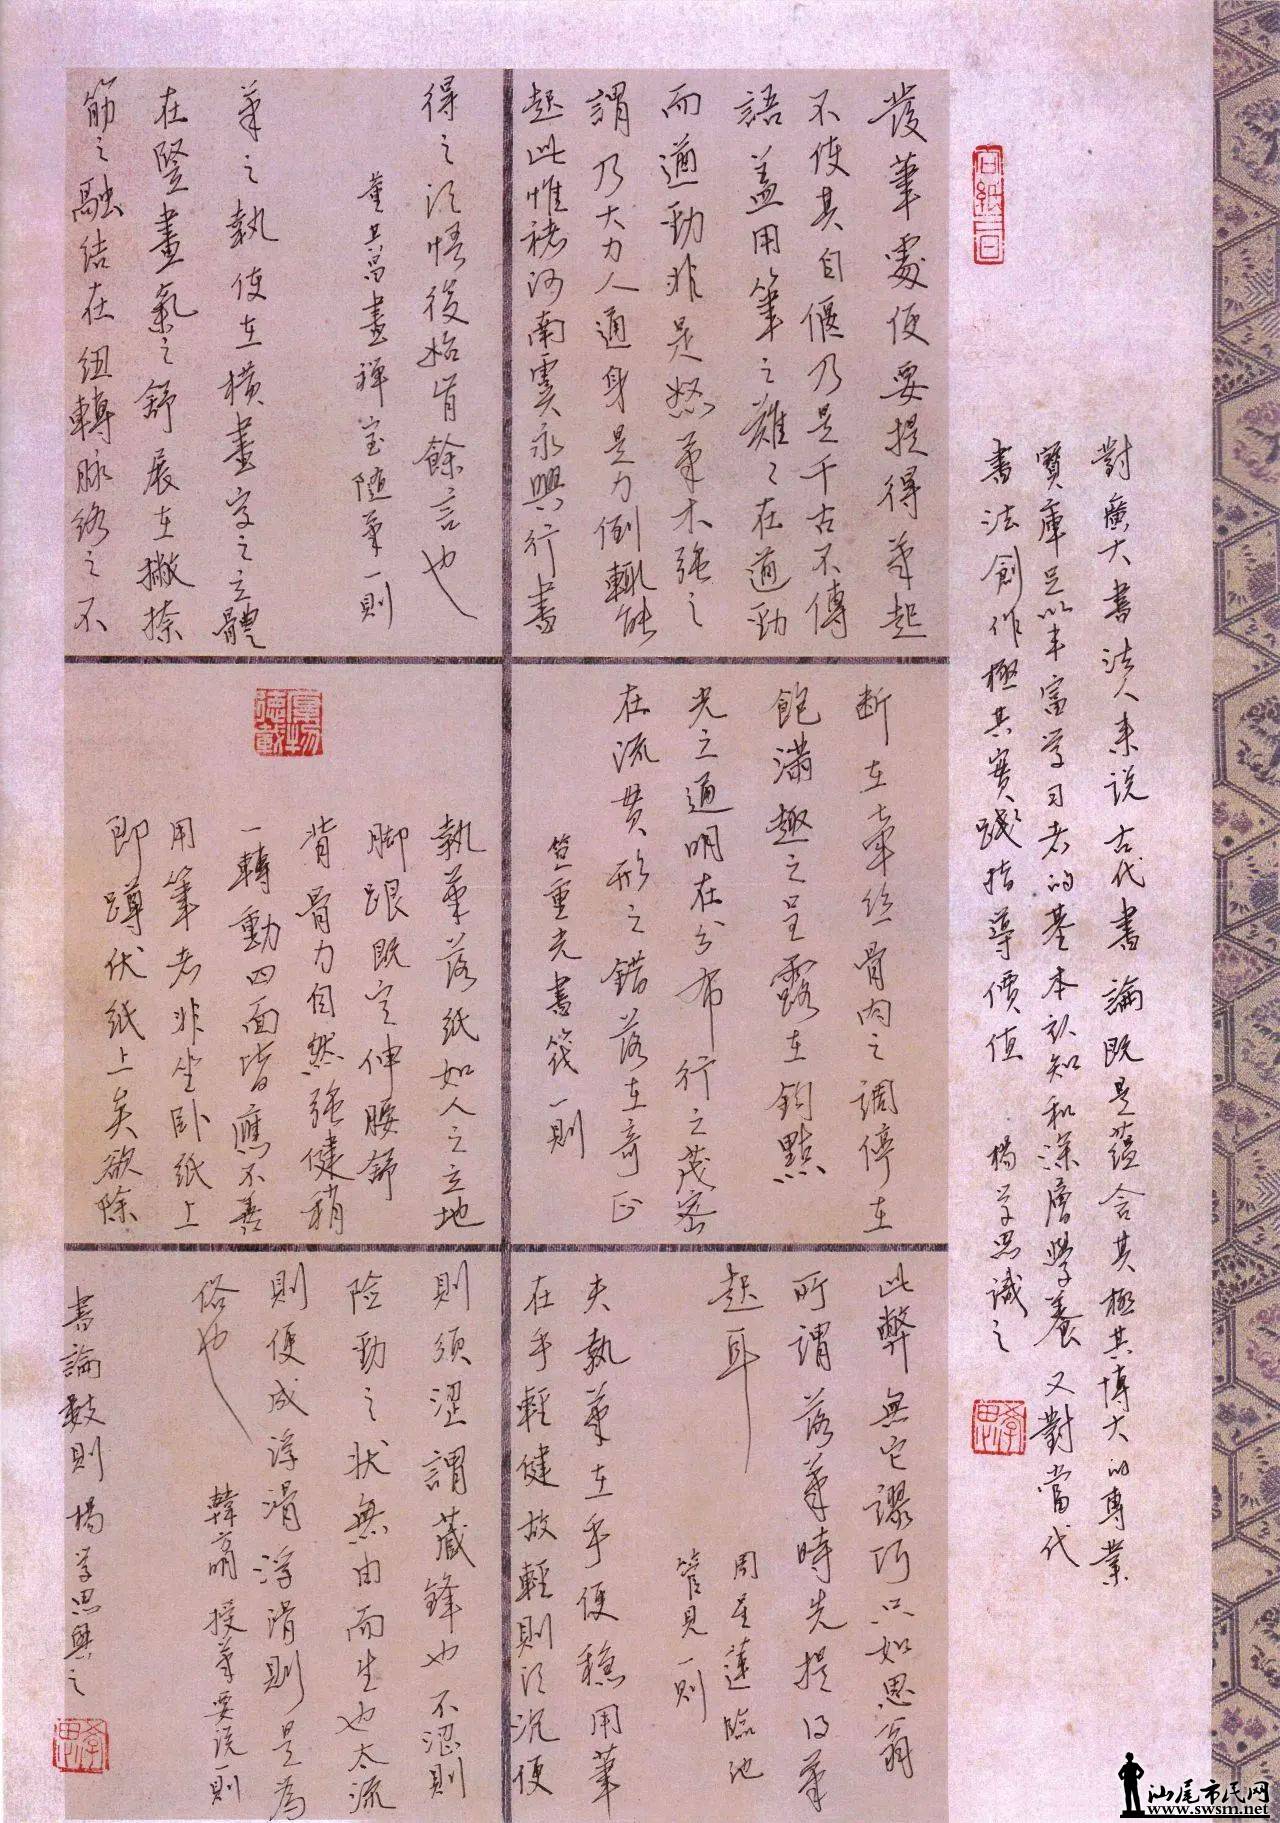 對廣大書法人来说古代書論既是蕴含其極其博大的專業
寳庫足以丰富学习者的基本认知和深層學養又對當代
書法創作極其實踐指導價值 楊学思識之
學思
發筆處便要提得筆起
不使其自偃乃是千古不傳
語蓋用筆之難々在遒勁
而遒勁非是怒筆木强之
謂乃大力人通身是力倒輒能
起此惟褚河南虞永興行書
得之须悟後始肯餘言也
董其昌畫禪室随筆一則
筆之執使在横畫字之立體
在竪畫氣之舒展在撇捺
筋之融结在纽轉脉络之不
断在牵丝骨肉之調停在
飽满趣之呈露在鈎點
光之通明在分布行之茂密
在流贯形之错落在奇正
笪重光書筏一則
厚德載物
執筆落纸如人之立地
脚跟既定伸腰舒
背骨力自然强健稍
一轉動四面皆應不善
用筆者非坐卧纸上
即蹲伏纸上矣欲除
此弊無它謬巧只如思翁
所謂落筆時先提得筆
起耳
周星蓮臨池
管見一則
夫執筆在乎便穏用筆
在乎輕健故輕則须沉便
則须涩謂藏鋒也不涩則
险勁之状無由而生也太流
則便成浮滑浮滑則是為
俗也
韓方明授筆要说一則
書論數則 楊学思興之
學思
汕尾市民网
www.swsm.net